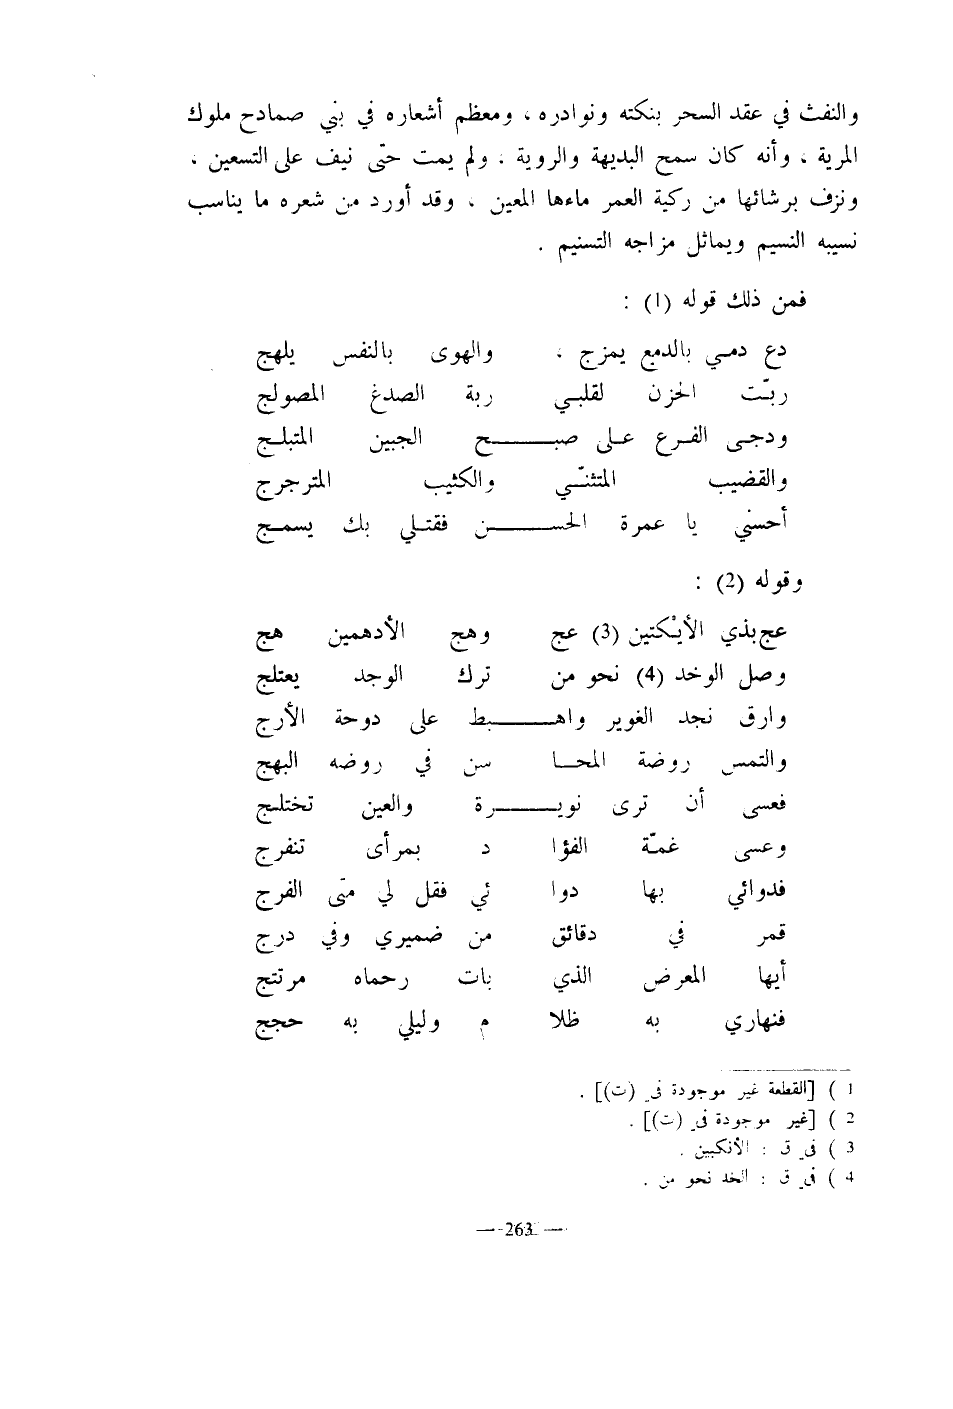 والنفث في عقد السحر بنكته ونوادره ، ومعظم أشعاره في بني صمادح ملوك
المرية ، وأنه كان سمح البديهة والروية ، ولم يمت حتّى نيف على التسعين ،
ونزف برشائها من ركية العمر ماءها المعين ، وقد أورد من شعره ما يناسب
نسيبه النسيم ويماثل مزاجه التسنيم .
فمن ذلك قوله (1) :
دع دمـي بالدمع يمزج ، والهوى بالنفس يلهج
ربّت الحزن لقلبي ربة الصدغ المصولج
ودجـى الفـرع عـلى صبـــح الجبين المتبلـج
والقضيب المتثنّـي والكثيب المترجرج
أحسنْي يا عمرة الحســـن فقتـلي بك يسمـج
وقوله (2) :
عج بذي الأيْكتين (3) عج وهج الأدهمين هج
وصل الوخد (4) نحو من ترك الوجد يعتلج
وارق نجد الغوير واهـــبط على دوحة الأرج
والتمس روضة المحـا سن في روضه البهج
فعسى أن ترى نويـــرة والعين تختلج
وعسى غمّة الفؤا د بمرأى تنفرج
فدوائي بها دوا ئي فقل لي متى الفرج
قمر في دقائق من ضميري وفي درج
أيها المعرض الذي بات رحماه مرتتج
فنهاري به ظلا م وليلي به حجج
1 ) [القطعة غير موجودة في (ت)] .
2 ) [غير موجودة في (ت)] .
3 ) في ق : الأنكبين .
4 ) في ق : الخد نحو من .
— 263 —